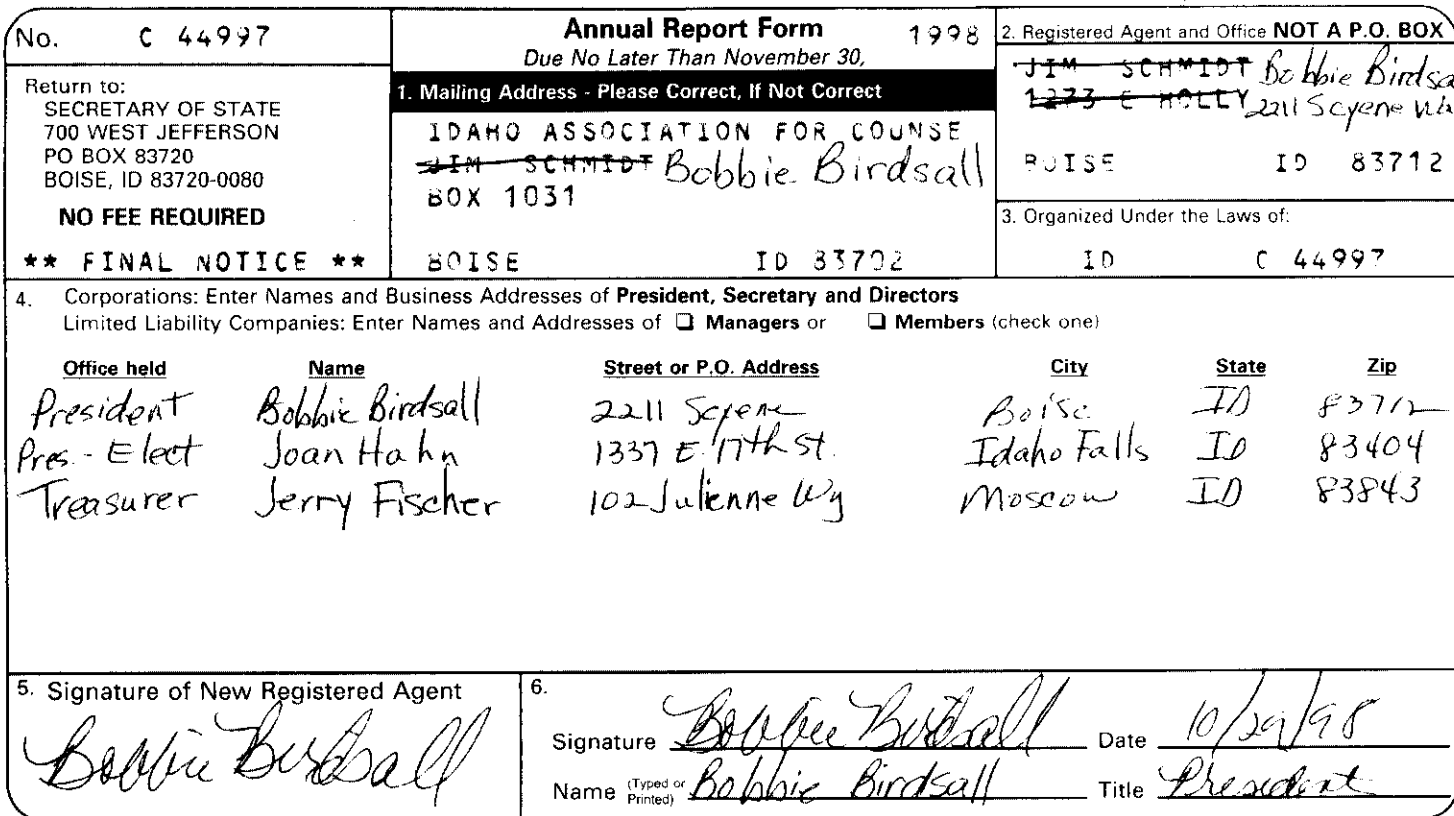 No. C 44997
Return to:
SECRETARY OF STATE
700 WEST JEFFERSON
PO BOX 83720
BOISE, ID 83720-0080
NO FEE REQUIRED
** FINAL NOTICE **
Annual Report Form 1998
Due No Later Than November 30,
1. Mailing Address - Please Correct, If Not Correct
IDAHO ASSOCIATION FOR COUNSE
JIM SCHMIDT Bobbie Birdsall
BOX 1031
BOISE ID 83702
2. Registered Agent and Office NOT A P.O. BOX
JIM SCHMIDT Bobbie Birdsa
1273 E HOLLY 2211 Scyene
BOISE ID 83712
3. Organized Under the Laws of:
ID C 44997
4. Corporations: Enter Names and Business Addresses of President, Secretary and Directors
Limited Liability Companies: Enter Names and Addresses of ❑ Managers or ❑ Members (check one)
Office held Name Street or P.O. Address City State Zip
President Bobbie Birdsall 2211 Scyene Boise ID 83712
Pres.-Elect Joan Hahn 1337 E. 17th St. Idaho Falls ID 83404
Treasurer Jerry Fischer 102 Julienne Wy Moscow ID 83843
5. Signature of New Registered Agent
Bobbie Birdsall
6.
Signature Bobbie Birdsall Date 10/29/98
Name (Typed or Printed) Bobbie Birdsall Title President